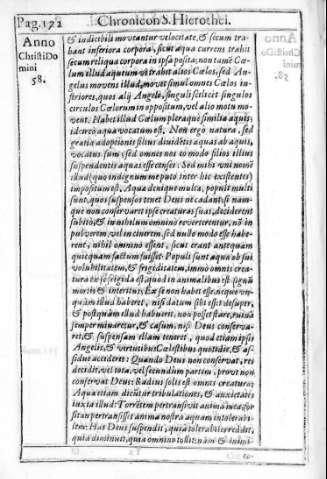 Pag. 172 Chronicon S. Hierothei.
Anno
Christi Do
mini
58.
& indicibili moveantur velocitate, & secum tra-
hant inferiora corpora, sicut aqua currens trahit
secum reliqua corpora in ipsa posita; non tamē Cœ-
lum illud aquæum vt trahit alios Cælos, sed An-
gelus movens illud, movet simul omnes Cælos in-
feriores, quos alij Angeli, singuli scilicet singulos
circulos Cælorum in oppositum, vel alio motu mo-
vent. Habet illud Cælum pleraque similia aquis;
idcircò aqua vocatum est. Non ergò natura, sed
gratia adoptionis filius
vocatus sum; sed omnes nos eo modo filios illius
suspendentis aquas esse censes. Sed mihi vni nomē
illud (quo indignum me puto inter hic existentes)
impositum est. Aqua denique multa, populi multi
sunt, quos suspensos tenet Deus ne cadant; si nam-
que non conservaret ipse creaturas suas, deciderent
subitò, & in nihilum omninò reverterentur, nō in
pulverem, vel in cinerem, sed nullo modo esse habe-
rent, nihil omninò essent, sicut erant antequam
quicquam factum fuisset. Populi sunt aqua ob sui
volubilitatem, & frigiditatem, immò omnis crea-
tura ex se frigida est; a quod in animalibus est signū
mortis & interitus. Ex se non habet esse, neque vn-
quam illud haberet, nisi datum sibi esset desuper,
& postquàm illud habuerit, non posset stare, ruinā
semper minaretur, & casum, nisi Deus conserva-
ret, & suspensam illam teneret, quod etiam ipsis
Angelis, & virtutibus Cælestibus quotidiè, & as-
siduè accideret: Quando Deus non conservat, res
decidit, vel tota, vel secundum partem, prout non
conservat Deus: Radius solis est omnis creatura:
Aquæ etiam dicuntur tribulationes, & anxietates
iuxta illud: Torrentem pertransivit anima nostra, for-
sitan pertransisset anima nostra aquam intolerabi-
lem: Has Deus suspendit, quia tolerabiles reddit,
quia diminuit, quia omninò tollit:nam &